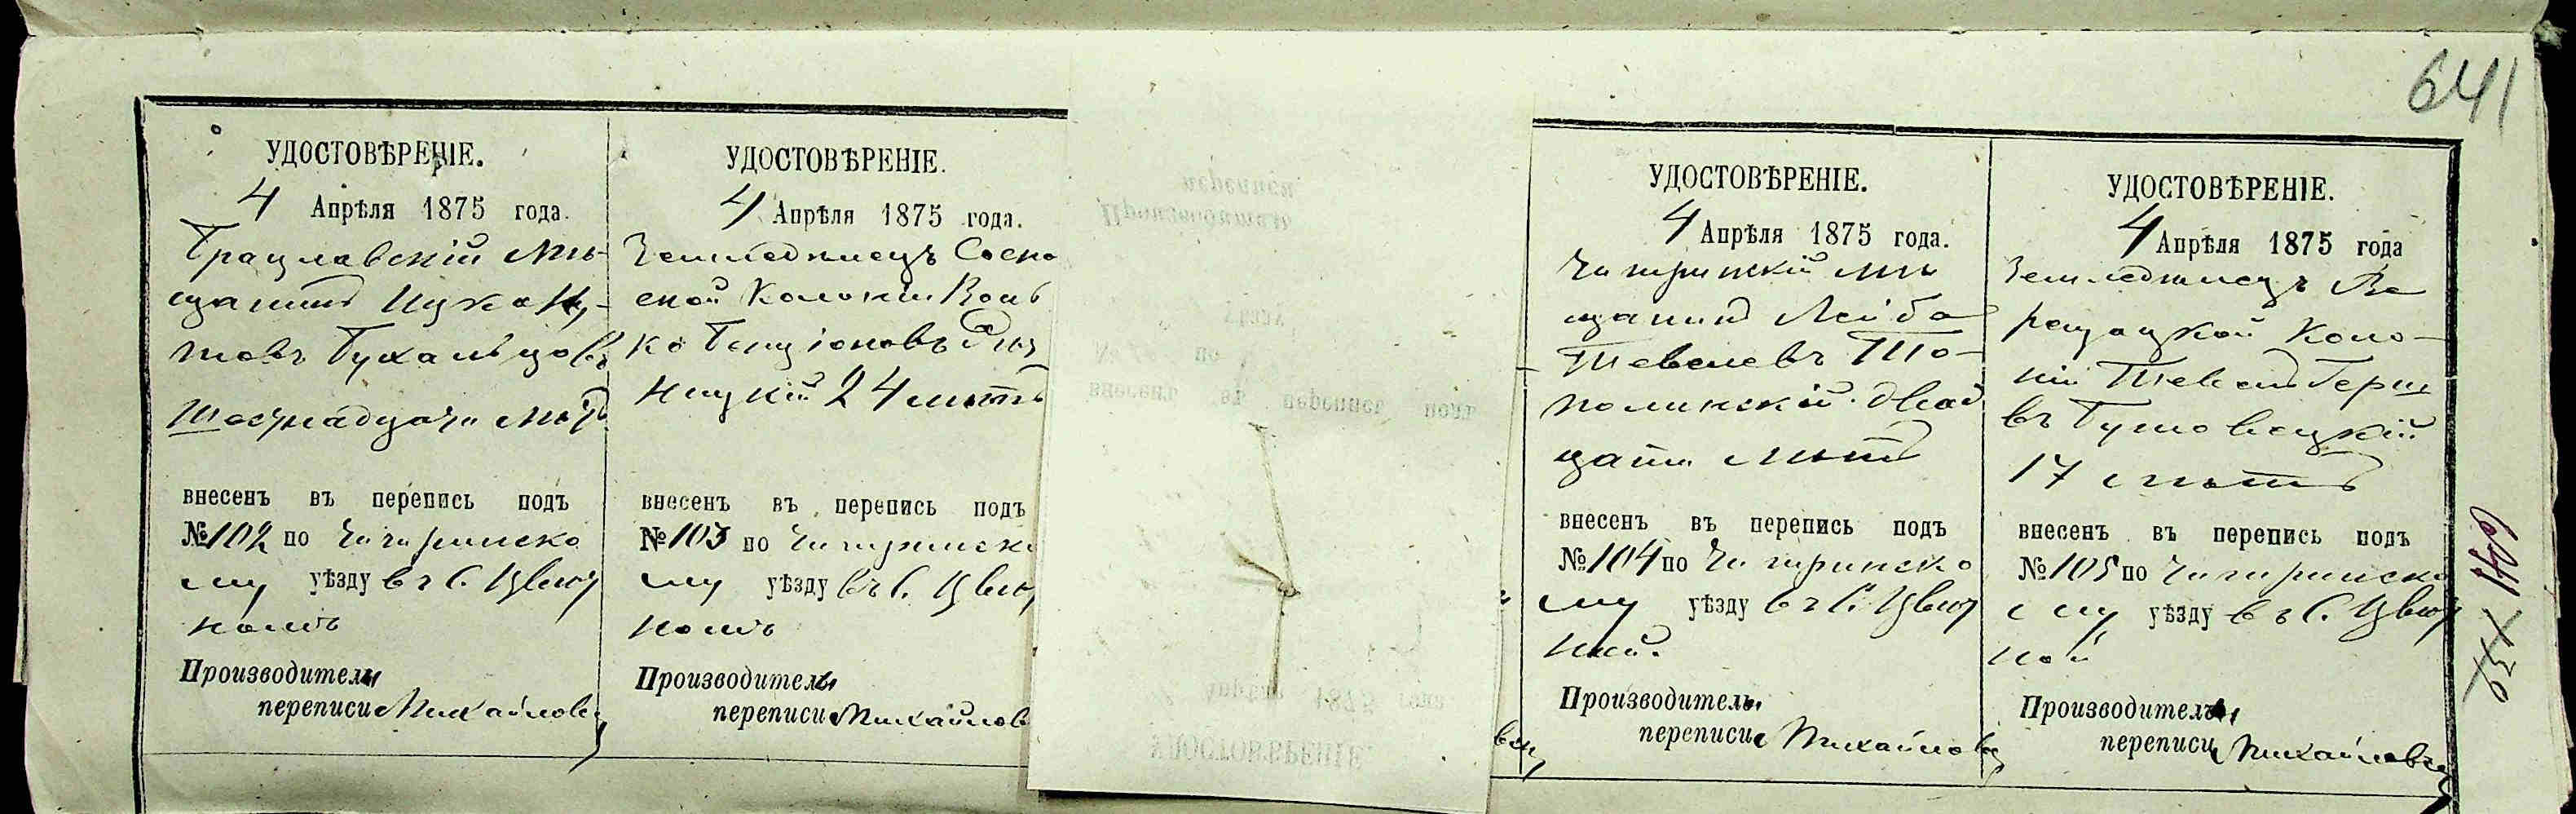 641
УДОСТОВѢРЕНІЕ.
4 Апрѣля 1875 года.
Брацлавскій мѣ-
щанинъ Ицко
товъ
Шестнадцати лѣтъ
внесенъ въ перепись подъ
№102 по Чигиринско
му уѣзду въ с. Цвѣт
номъ
Производитель
переписи Михайловъ
УДОСТОВѢРЕНІЕ.
4 Апрѣля 1875 года.
Земледѣлецъ Сосно
ской Колоніи Волъ
ко Бенціоновъ
24 лѣтъ
внесенъ въ перепись подъ
№103 по Чигиринско
му уѣзду въ с. Цвѣт
номъ
Производитель
переписи Михайлов
УДОСТОВѢРЕНІЕ.
4 Апрѣля 1875 года.
Чигринскій мѣ
щанинъ Лейба
Тевелевъ То-
полинскій двад
цати лѣтъ
внесенъ въ перепись подъ
№104 по Чигиринско
му уѣзду въ с. Цвѣт
ной.
Производитель
переписи Михайлов
УДОСТОВѢРЕНІЕ.
4 Апрѣля 1875 года
Земледѣлецъ Ве
рещацкой Коло-
ніи Тевель Герш
въ
17 лѣтъ
внесенъ въ перепись подъ
№105 по Чигиринско
му уѣзду въ с. Цвѣт
ной
Производитель
переписи Михайлов